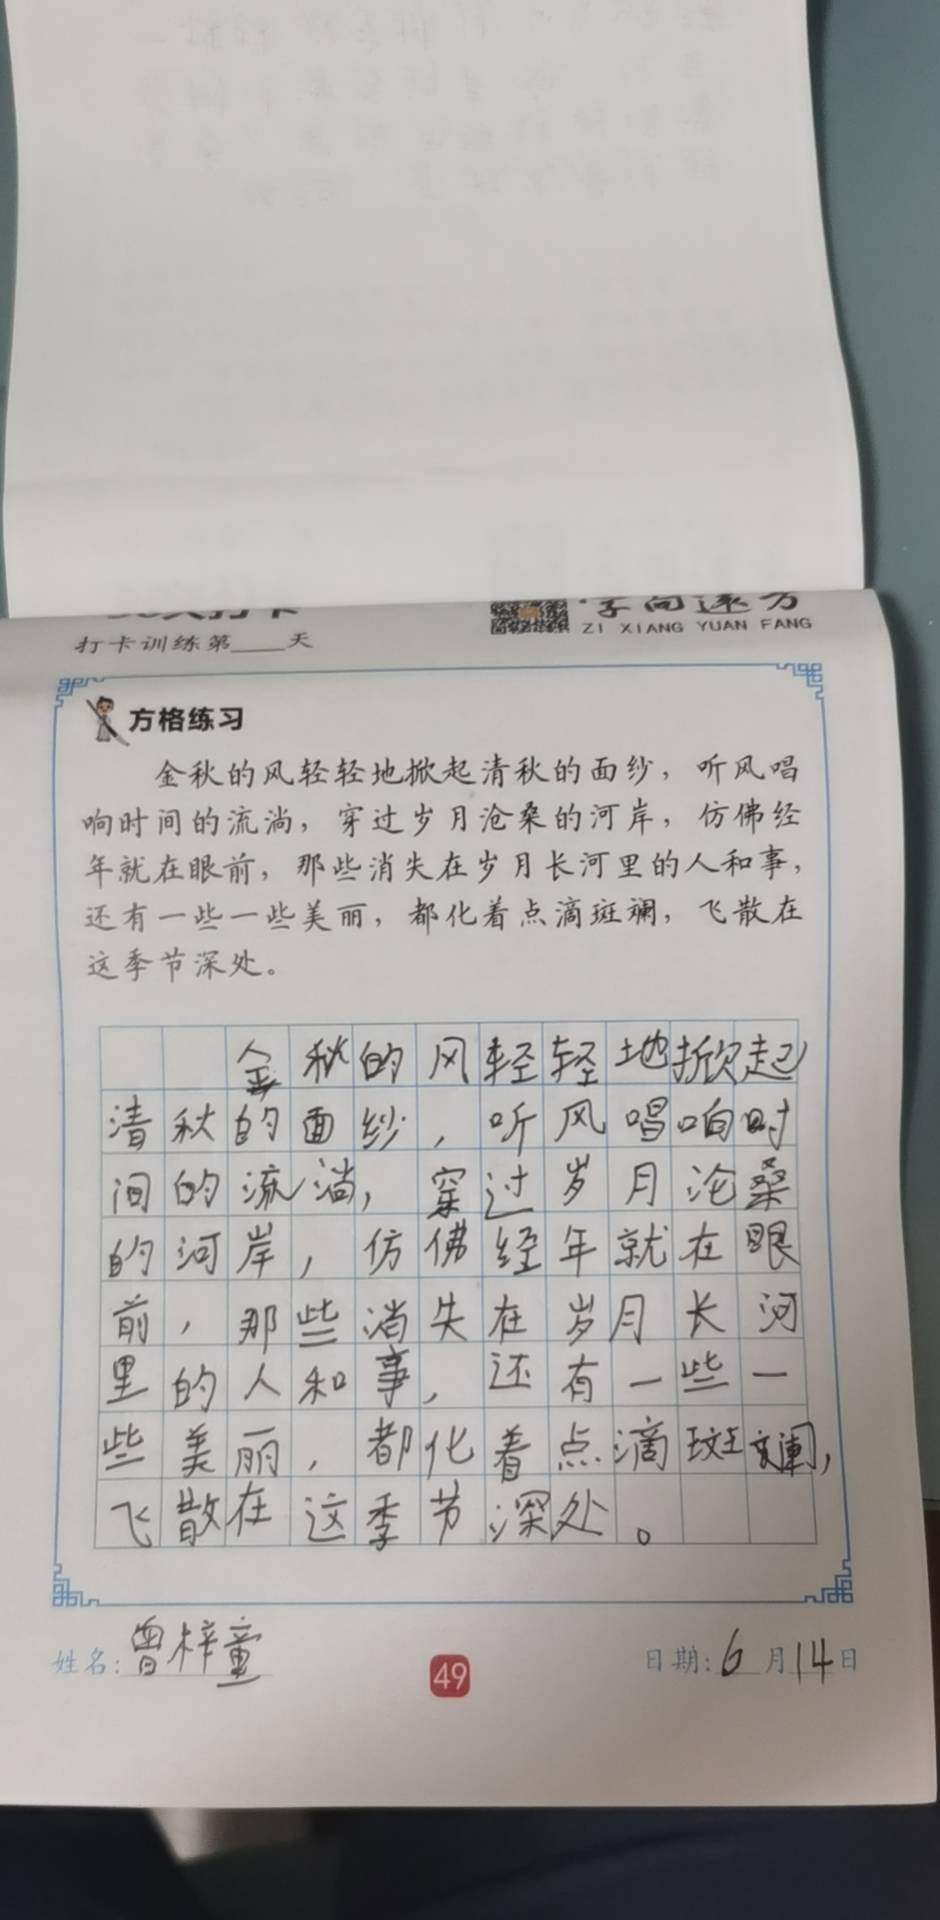 打卡训练第____天
ZI XIANG YUAN FANG
方格练习
金秋的风轻轻地掀起清秋的面纱，听风唱
响时间的流淌，穿过岁月沧桑的河岸，仿佛经
年就在眼前，那些消失在岁月长河里的人和事，
还有一些一些美丽，都化着点滴斑斓，飞散在
这季节深处。
金秋的风轻轻地掀起
清秋的面纱，听风唱响时
间的流淌，穿过岁月沧桑
的河岸，仿佛经年就在眼
前，那些消失在岁月长河
里的人和事，还有一些一
些美丽，都化着点滴斑斓，
飞散在这季节深处。
姓名：曾梓童
49
日期：6月14日